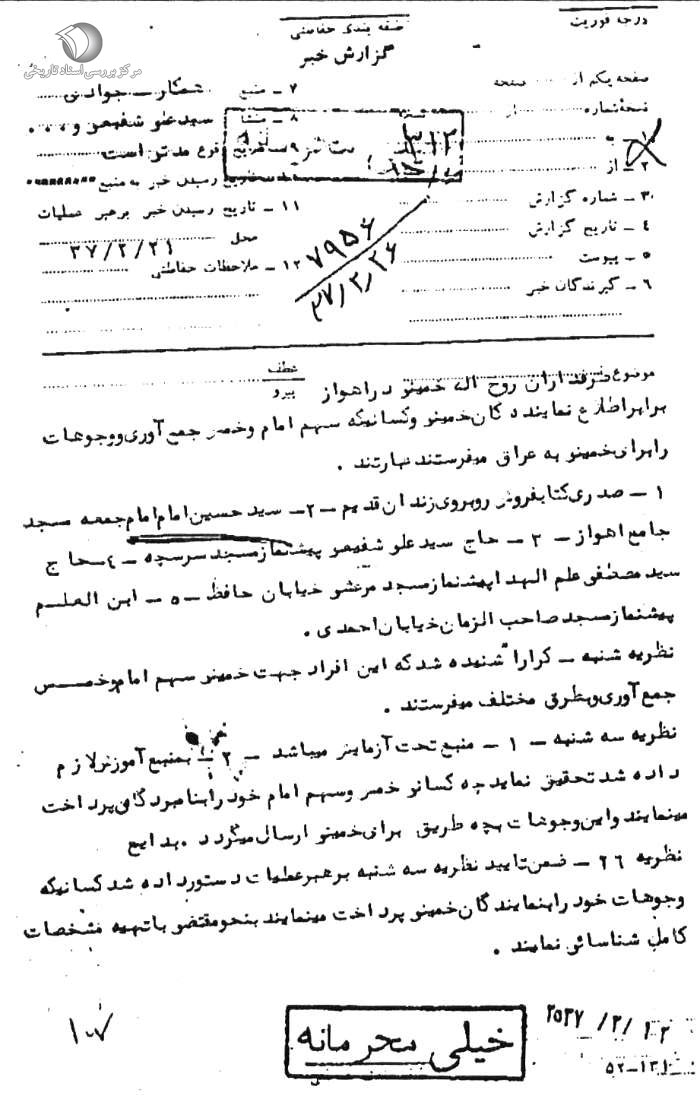 مرکز بررسی اسناد تاریخی
درجه فوریت
طبقه بندی حفاظتی
گزارش خبر
صفحه یکم از صفحه
نسخهٔ شماره از
۱ـ به
۲ـ از
۳ـ شماره گزارش
۴ـ تاریخ گزارش
۵ـ پیوست
۶ـ گیرندگان خبر
۷ـ منبع جوادی
۸ـ منشأ سیدعلی شفیعی و ...
۹ـ مدتی است
تاریخ رسیدن خبر به منبع
۱۱ـ تاریخ رسیدن خبر برهبر عملیات
محل ۳۷/۲/۲۱
۱۲ـ ملاحظات حفاظتی
۳۱۲
۷۹۵۶
۳۷/۲/۲۶
موضوع طرفداران روح اله خمینی در اهواز
عطف
پیرو
برابر اطلاع نمایندگان خمینی و کسانیکه سهم امام و خمس جمع آوری و وجوهات
را برای خمینی به عراق میفرستند عبارتند .
۱ ـ صدری کتابفروش روبروی زندان قدیم ـ ۲ـ سید حسین امام امام جمعه مسجد
جامع اهواز ـ ۳ ـ حاج سید علی شفیعی پیشنماز مسجد سرسچه ـ ۴ـ حاج
سید مصطفی علم الهدا پیشنماز مسجد مرعشی خیابان حافظ ـ ۵ ـ ابن العلم
پیشنماز مسجد صاحب الزمان خیابان احمدی .
نظریه شنبه ـ کراراً شنیده شد که این افراد جهت خمینی سهم امام و خمس
جمع آوری و بطرق مختلف میفرستند .
نظریه سه شنبه ـ ۱ ـ منبع تحت آزمایش میباشد ـ ۲ ـ بمنبع آموزش لازم
داده شد تحقیق نماید چه کسانی خمس و سهم امام خود را بنامبردگان پرداخت
مینمایند و این وجوهات بچه طریق برای خمینی ارسال میگردد . بدایع
نظریه ۲۶ ـ ضمن تایید نظریه سه شنبه برهبر عملیات دستور داده شد کسانیکه
وجوهات خود را بنمایندگان خمینی پرداخت مینمایند بنحو مقتضی با تهیه مشخصات
کامل شناسائی نمایند .
۱۰۷
خیلی محرمانه
۲۵۳۷/۲/۱۲
۵۲ـ۱۳۱